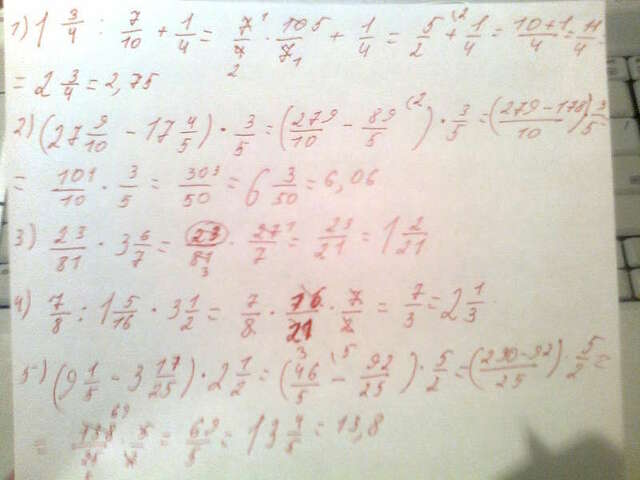 1) 1 3/4 : 7/10 + 1/4 = 7/4 · 10/7 + 1/4 = 5/2 + 1/4 = 10+1/4 = 11/4
= 2 3/4 = 2,75
2) (27 9/10 - 17 4/5) · 3/5 = (279/10 - 89/5) · 3/5 = (279-178/10) · 3/5 =
= 101/10 · 3/5 = 303/50 = 6 3/50 = 6,06
3) 23/81 · 3 6/7 = 23/81 · 27/7 = 23/21 = 1 2/21
4) 7/8 : 1 5/16 · 3 1/2 = 7/8 · 16/21 · 7/2 = 7/3 = 2 1/3
5) (9 1/5 - 3 17/25) · 2 1/2 = (46/5 - 92/25) · 5/2 = (230-92/25) · 5/2 =
= 138/25 · 5/2 = 69/5 = 13 4/5 = 13,8